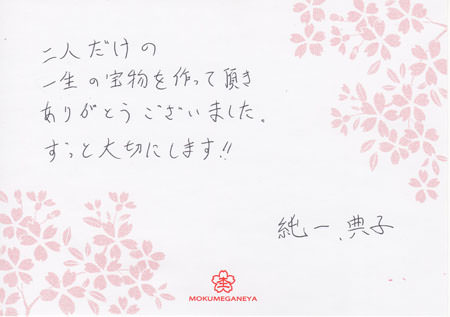 二人だけの
一生の宝物を作って頂き
ありがとうございました。
ずっと大切にします!!
純一、典子
MOKUMEGANEYA